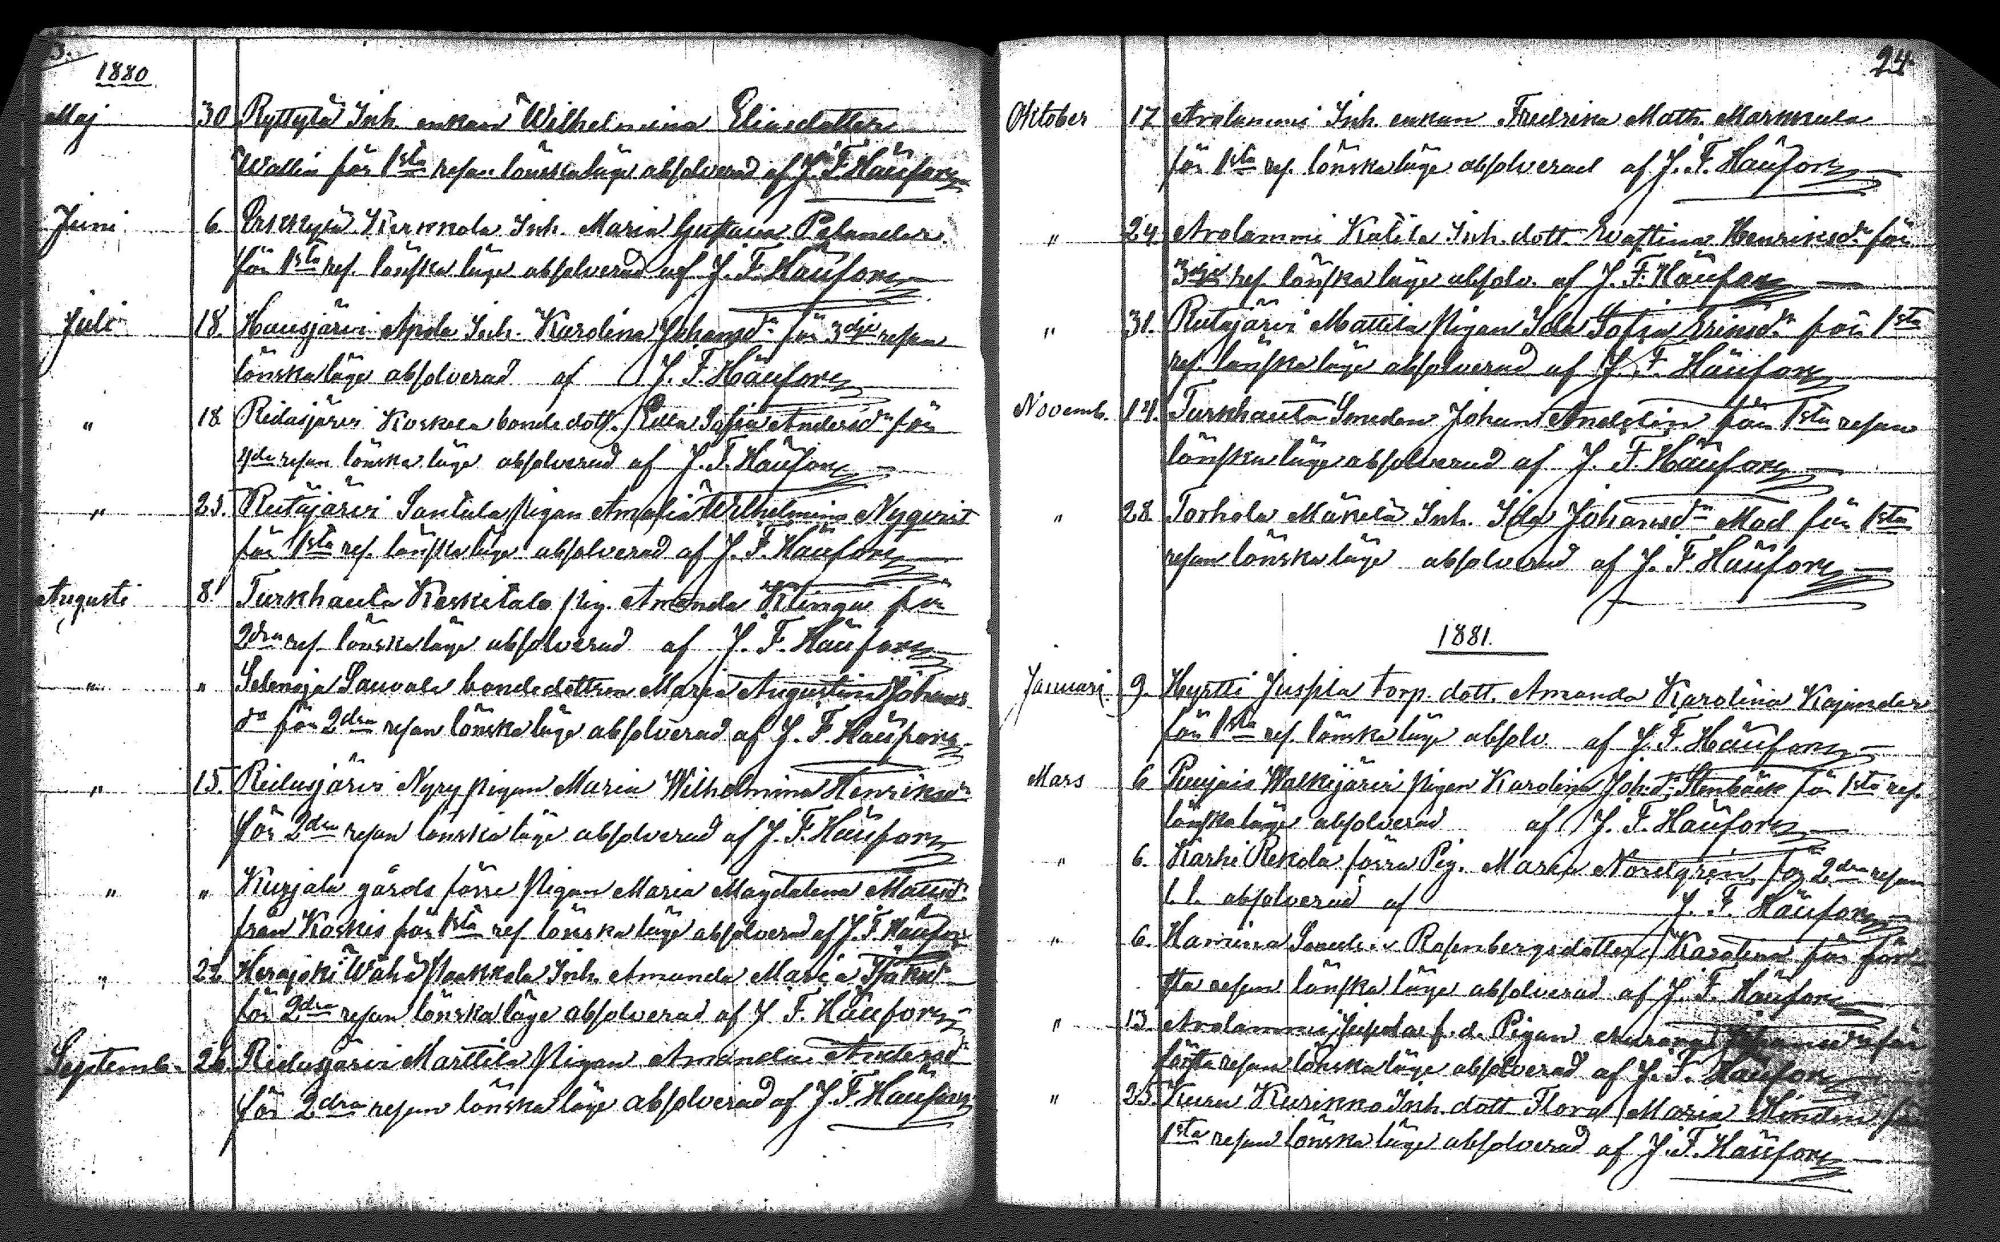 3.
1880
Maj 30 Ryttylä Inh. enkan Wilhelmina Eliasdotter
Wallin för 1sta resan lönskaläge absolverad af J. F. Häufors
Juni 6 Erkkylä Kerkkola Inh. Maria Gustava Pelander
för 1sta res. lönskaläge absolverad af J. F. Häufors
Juli 18. Hausjärvi Inh. Karolina Johansdr för 3dje resan
lönskaläge absolverad af J. F. Häufors
" 18 Ridasjärvi Koskela bonde dott. Ulla Sofia Andersdr för
lönskaläge absolverad af J. F. Häufors
" 25. Rutajärvi Santala pigan Amalia Wilhelmina Nyqvist
för 1sta res. lönskaläge absolverad af J. F. Häufors
Augusti 8 Turkhauta Keskitalo pig. Amanda Klinga för
2dra res. lönskaläge absolverad af J. F. Häufors
" " Selenoja Sauvala bondedottren Maria Augustina Johans
dr för 2dra resan lönskaläge absolverad af J. F. Häufors
" 15. Ridasjärvi Nyry pigan Maria Wilhelmina Henriksdr
för 2dra resan lönskaläge absolverad af J. F. Häufors
" " Kurjala gårds förre pigan Maria Magdalena Matsdr
från Koskis för 1sta res. lönskaläge absolverad af J. F. Häufors
" 22 Herajoki Wähä Inh. Amanda Maria
för 2dra resan lönskaläge absolverad af J. F. Häufors
Septemb. 26. Ridasjärvi Marttila pigan Amanda Andersdr
för 2dra resan lönskaläge absolverad af J. F. Häufors
24
Oktober 17 Arolammi Inh. enkan Fredrika Math. Markkula
för 1sta res. lönskaläge absolverad af J. F. Häufors
" 24. Arolammi Katila Inh. dott. Evastina Henriksdr för
3dje res. lönskaläge absolv. af J. F. Häufors
" 31. Rutajärvi Mattila pigan Ida Sofia Eriksdr för 1sta
res. lönskaläge absolverad af J. F. Häufors
Novemb. 14. Turkhauta Smeden Johan Andelin för 1sta resan
lönskaläge absolverad af J. F. Häufors
" 28 Torhola Mäkelä Inh. Ida Johansdr Mod för 1sta
resan lönskaläge absolverad af J. F. Häufors
1881.
Januari 9 Hyrtti Juspla torp. dott. Amanda Karolina Kajander
för 1sta res. lönskaläge absolv. af J. F. Häufors
Mars 6 Puujais Walkijärvi pigan Karolina Joh.dr Stenbäck för 1sta res.
lönskaläge absolverad af J. F. Häufors
" 6. Karhi Rekola förra Pig. Maria Nordgrén för 2dra resan
l. l. absolverad af J. F. Häufors
" 6. Hamina Rosenbergsdotter Karolina för för
sta resan lönskaläge absolverad af J. F. Häufors
" 13. Arolammi Jupila f. d. Pigan Johansdr för
första resan lönskaläge absolverad af J. F. Häufors
" 25. Kuru Kurikka Inh. dott Flora Maria Lindén för
1sta resan lönskaläge absolverad af J. F. Häufors